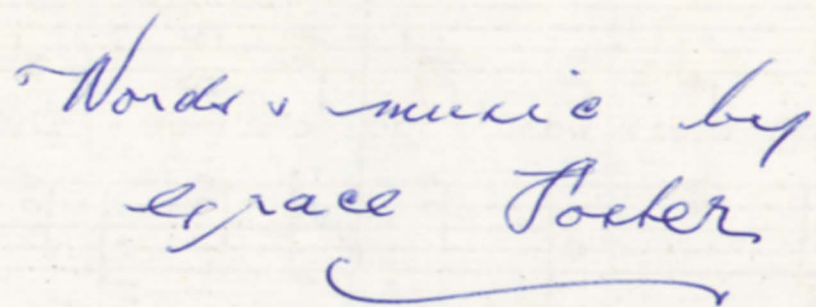 Words & music by
Grace Foster